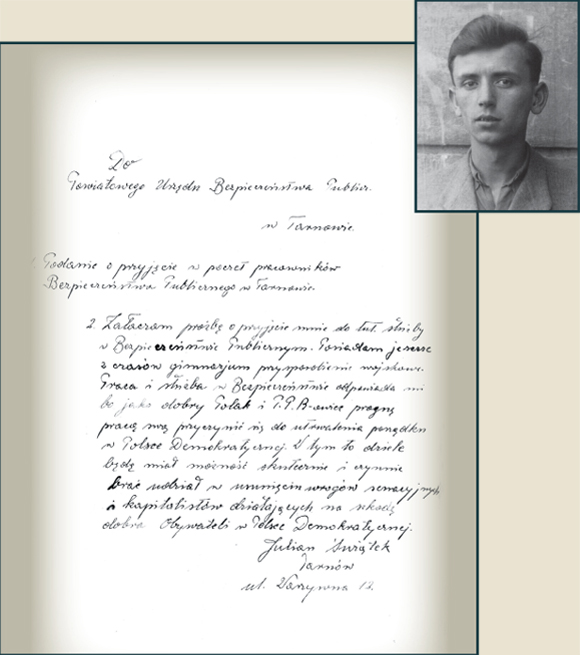 Do
Powiatowego Urzędu Bezpieczeństwa Publicz.
w Tarnowie.
1. Podanie o przyjęcie w poczet pracowników
Bezpieczeństwa Publicznego w Tarnowie.
2. Załączam prośbę o przyjęcie mnie do tut. służby
w Bezpieczeństwie Publicznym. Posiadam jeszcze
z czasów gimnazjum przysposobienie wojskowe.
Praca i służba w Bezpieczeństwie odpowiada mi
bo jako dobry Polak i P.P.R-owiec pragnę
pracą swą przyczynić się do utrwalenia porządku
w Polsce Demokratycznej. W tym to dziele
będę miał możność skutecznie i czynnie
brać udział w usunięciu wrogów reakcyjnych
i kapitalistów działających na szkodę
dobra Obywateli w Polsce Demokratycznej.
Julian Świątek
Tarnów
ul. Warzywna 12.